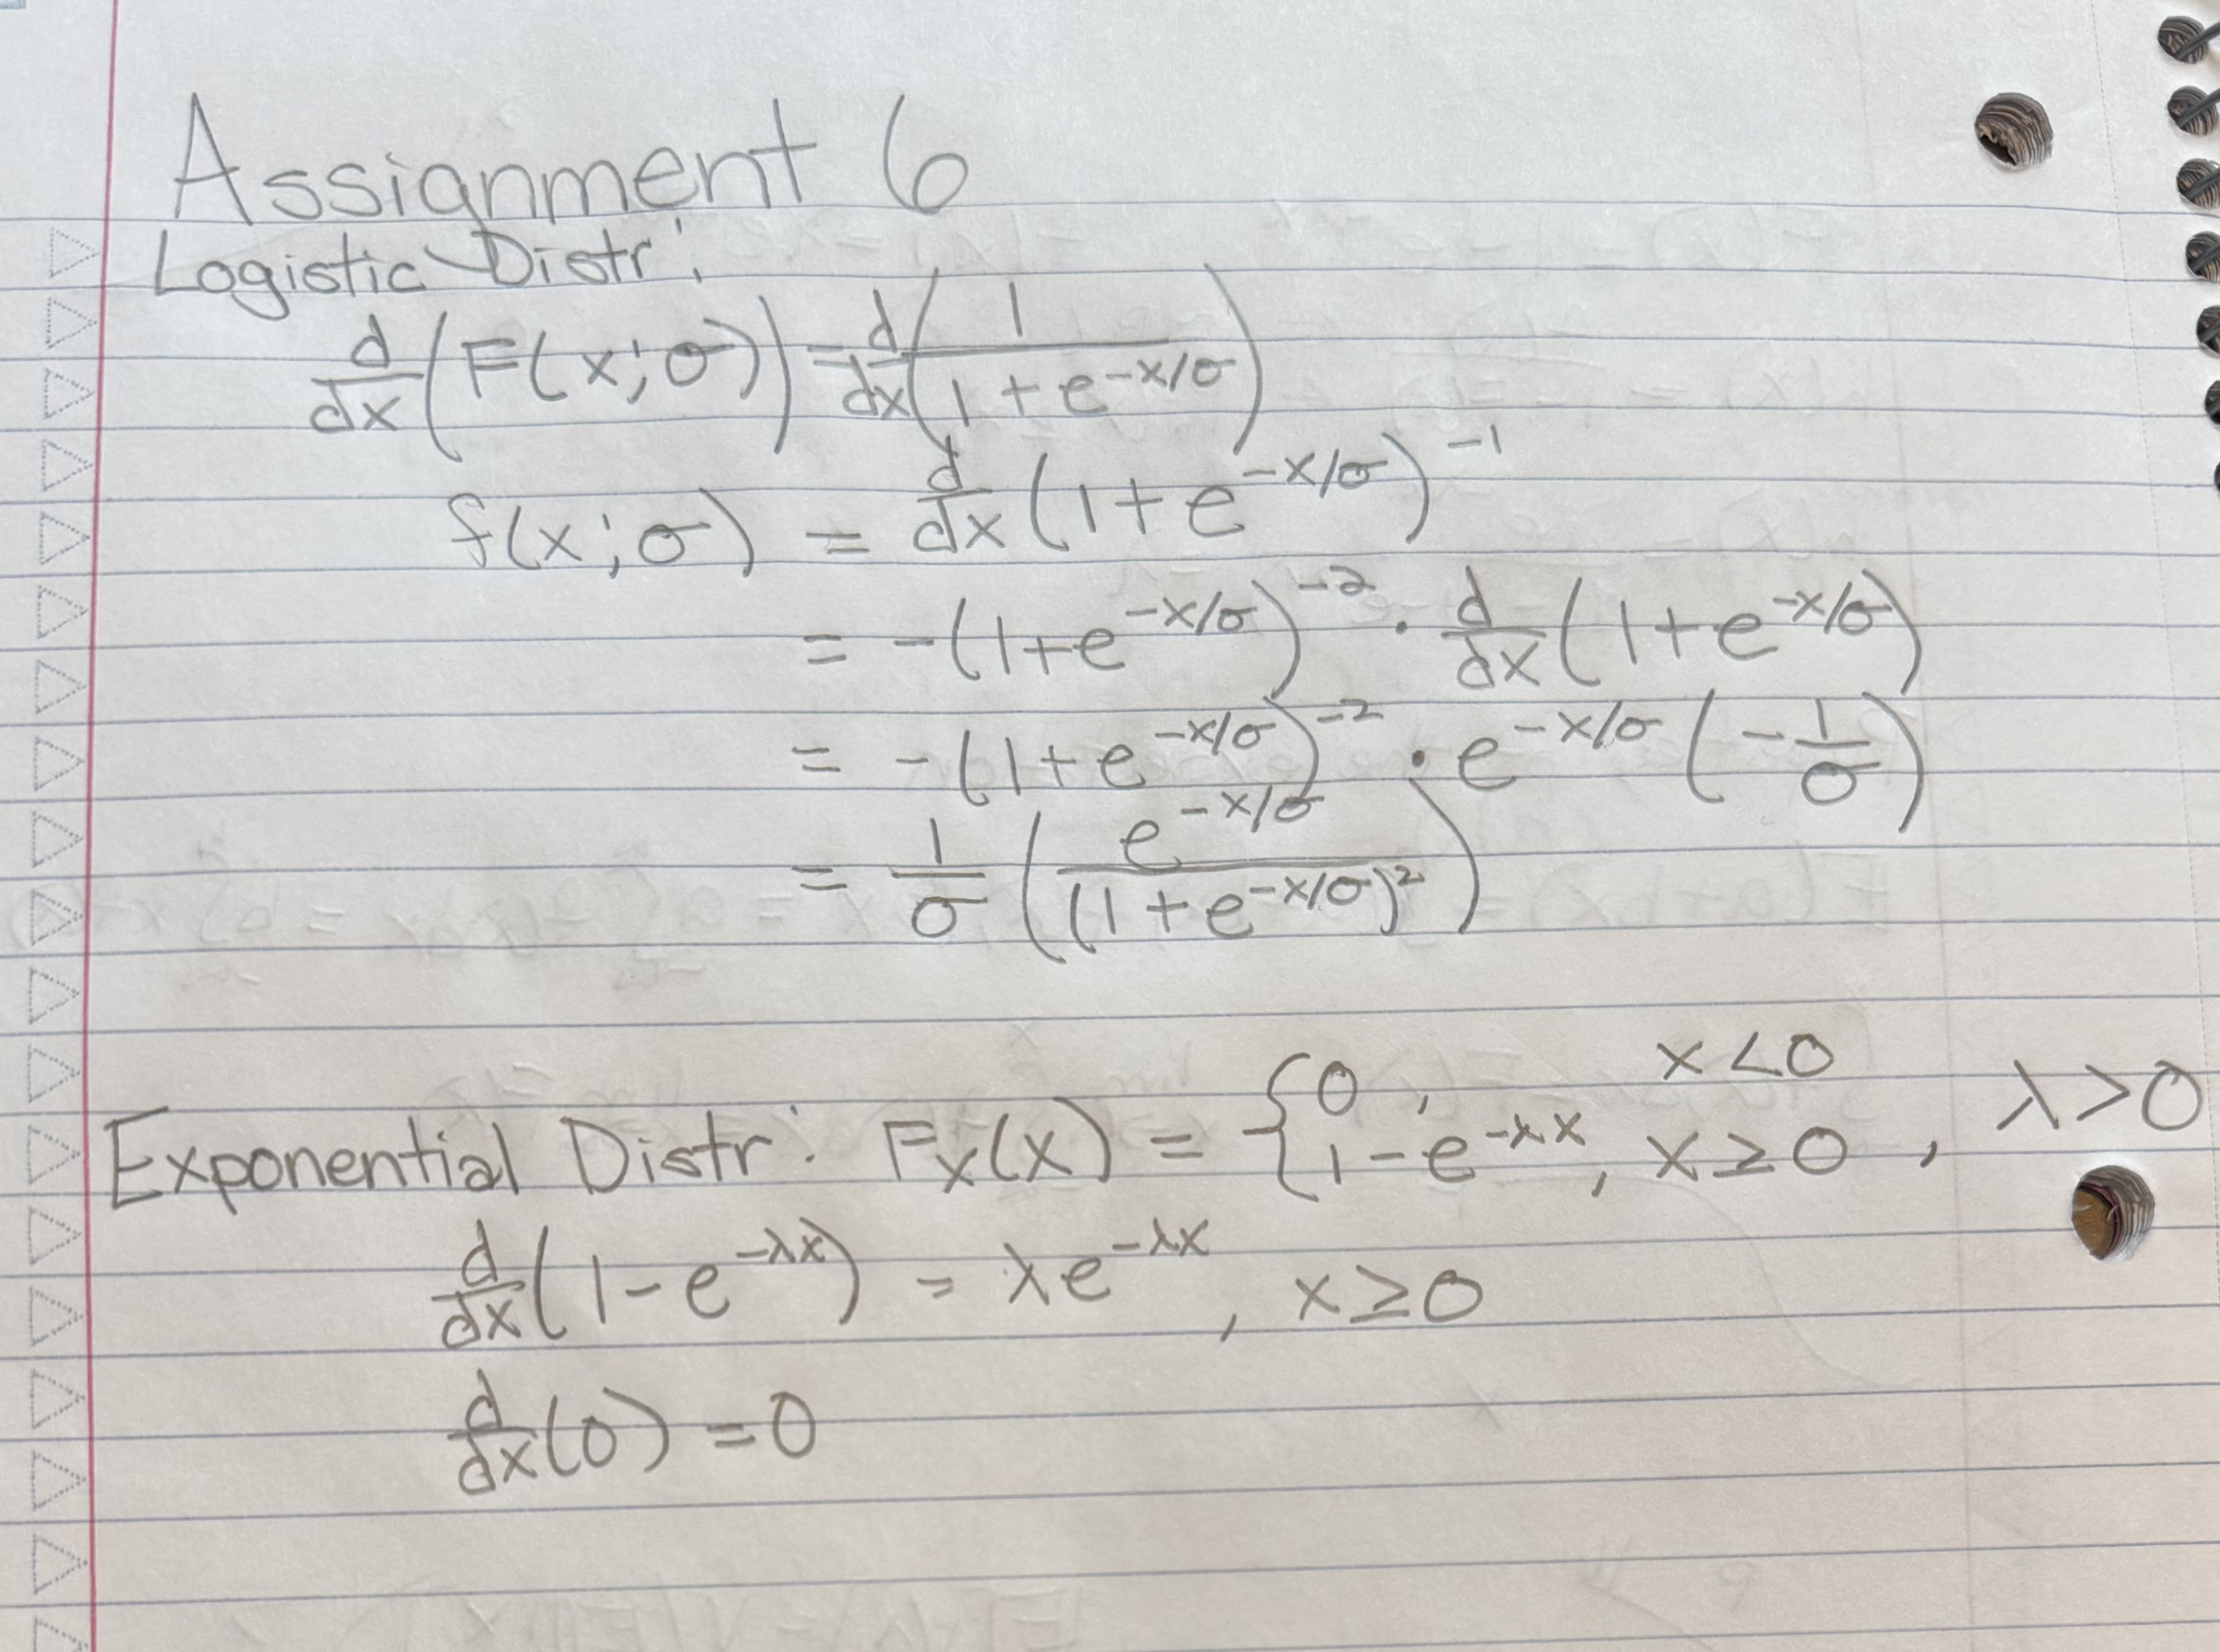 Assignment 6
Logistic Distr:
d/dx (F(x;σ)) = d/dx (1/(1+e^(-x/σ)))
f(x;σ) = d/dx (1+e^(-x/σ))^(-1)
= -(1+e^(-x/σ))^(-2) · d/dx (1+e^(-x/σ))
= -(1+e^(-x/σ))^(-2) · e^(-x/σ) (-1/σ)
= 1/σ (e^(-x/σ)/(1+e^(-x/σ))²)
Exponential Distr: F_X(x) = { 0, x<0
1-e^(-λx), x≥0 , λ>0
d/dx (1-e^(-λx)) = λe^(-λx), x≥0
d/dx (0) = 0